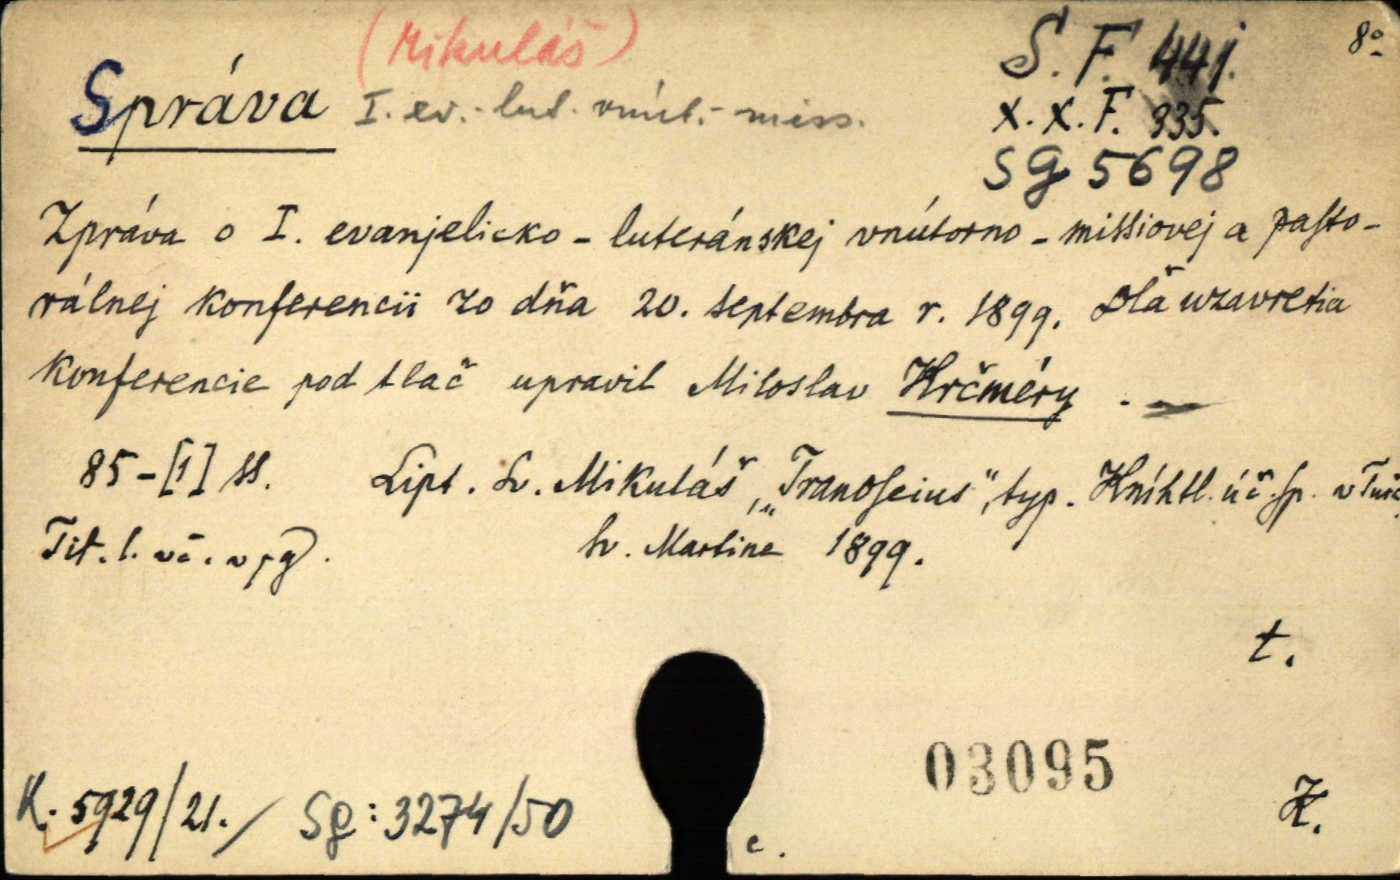 (Mikuláš)
8°
S. F. 441.
Správa I. ev.-lut. vnút.-miss.
X. X. F. 935.
Sg 5698
Zpráva o I. evanjelicko-luteránskej vnútorno-missiovej a pasto-
rálnej konferencii zo dňa 20. septembra r. 1899. Dľa uzavretia
konferencie pod tlač upravil Miloslav Krčméry.
85-[1] ss. Lipt. Sv. Mikuláš, „Tranoscius“, typ. Kníhtl. úč. sp. v Turč.
Tit. l. vč. v pg. Sv. Martine 1899.
t.
03095
K. 5929/21. Sg: 3274/50
K.
c.